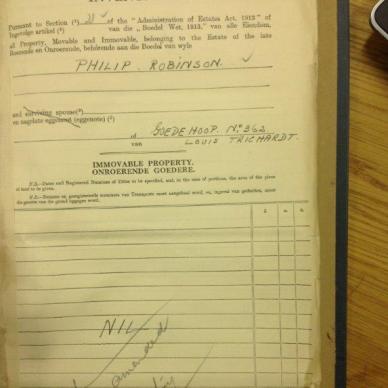 Pursuant to Section (¹) 31 of the "Administration of Estates Act, 1913" of
Ingevolge artikel (¹) van die „ Boedel Wet, 1913," van alle Eiendom,
all Property, Movable and Immovable, belonging to the Estate of the late
Roerende en Onroerende, behorende aan die Boedel van wyle
PHILIP ROBINSON.
and surviving spouse(²)
en nagelate eggenoot (eggenote) (²)
of GOEDEHOOP. No. 363
van LOUIS TRICHARDT.
IMMOVABLE PROPERTY.
ONROERENDE GOEDERE.
N.B.—Dates and Registered Numbers of Titles to be specified, and, in the case of portions, the area of the piece
of land to be given.
£ s. d.
NIL
amended